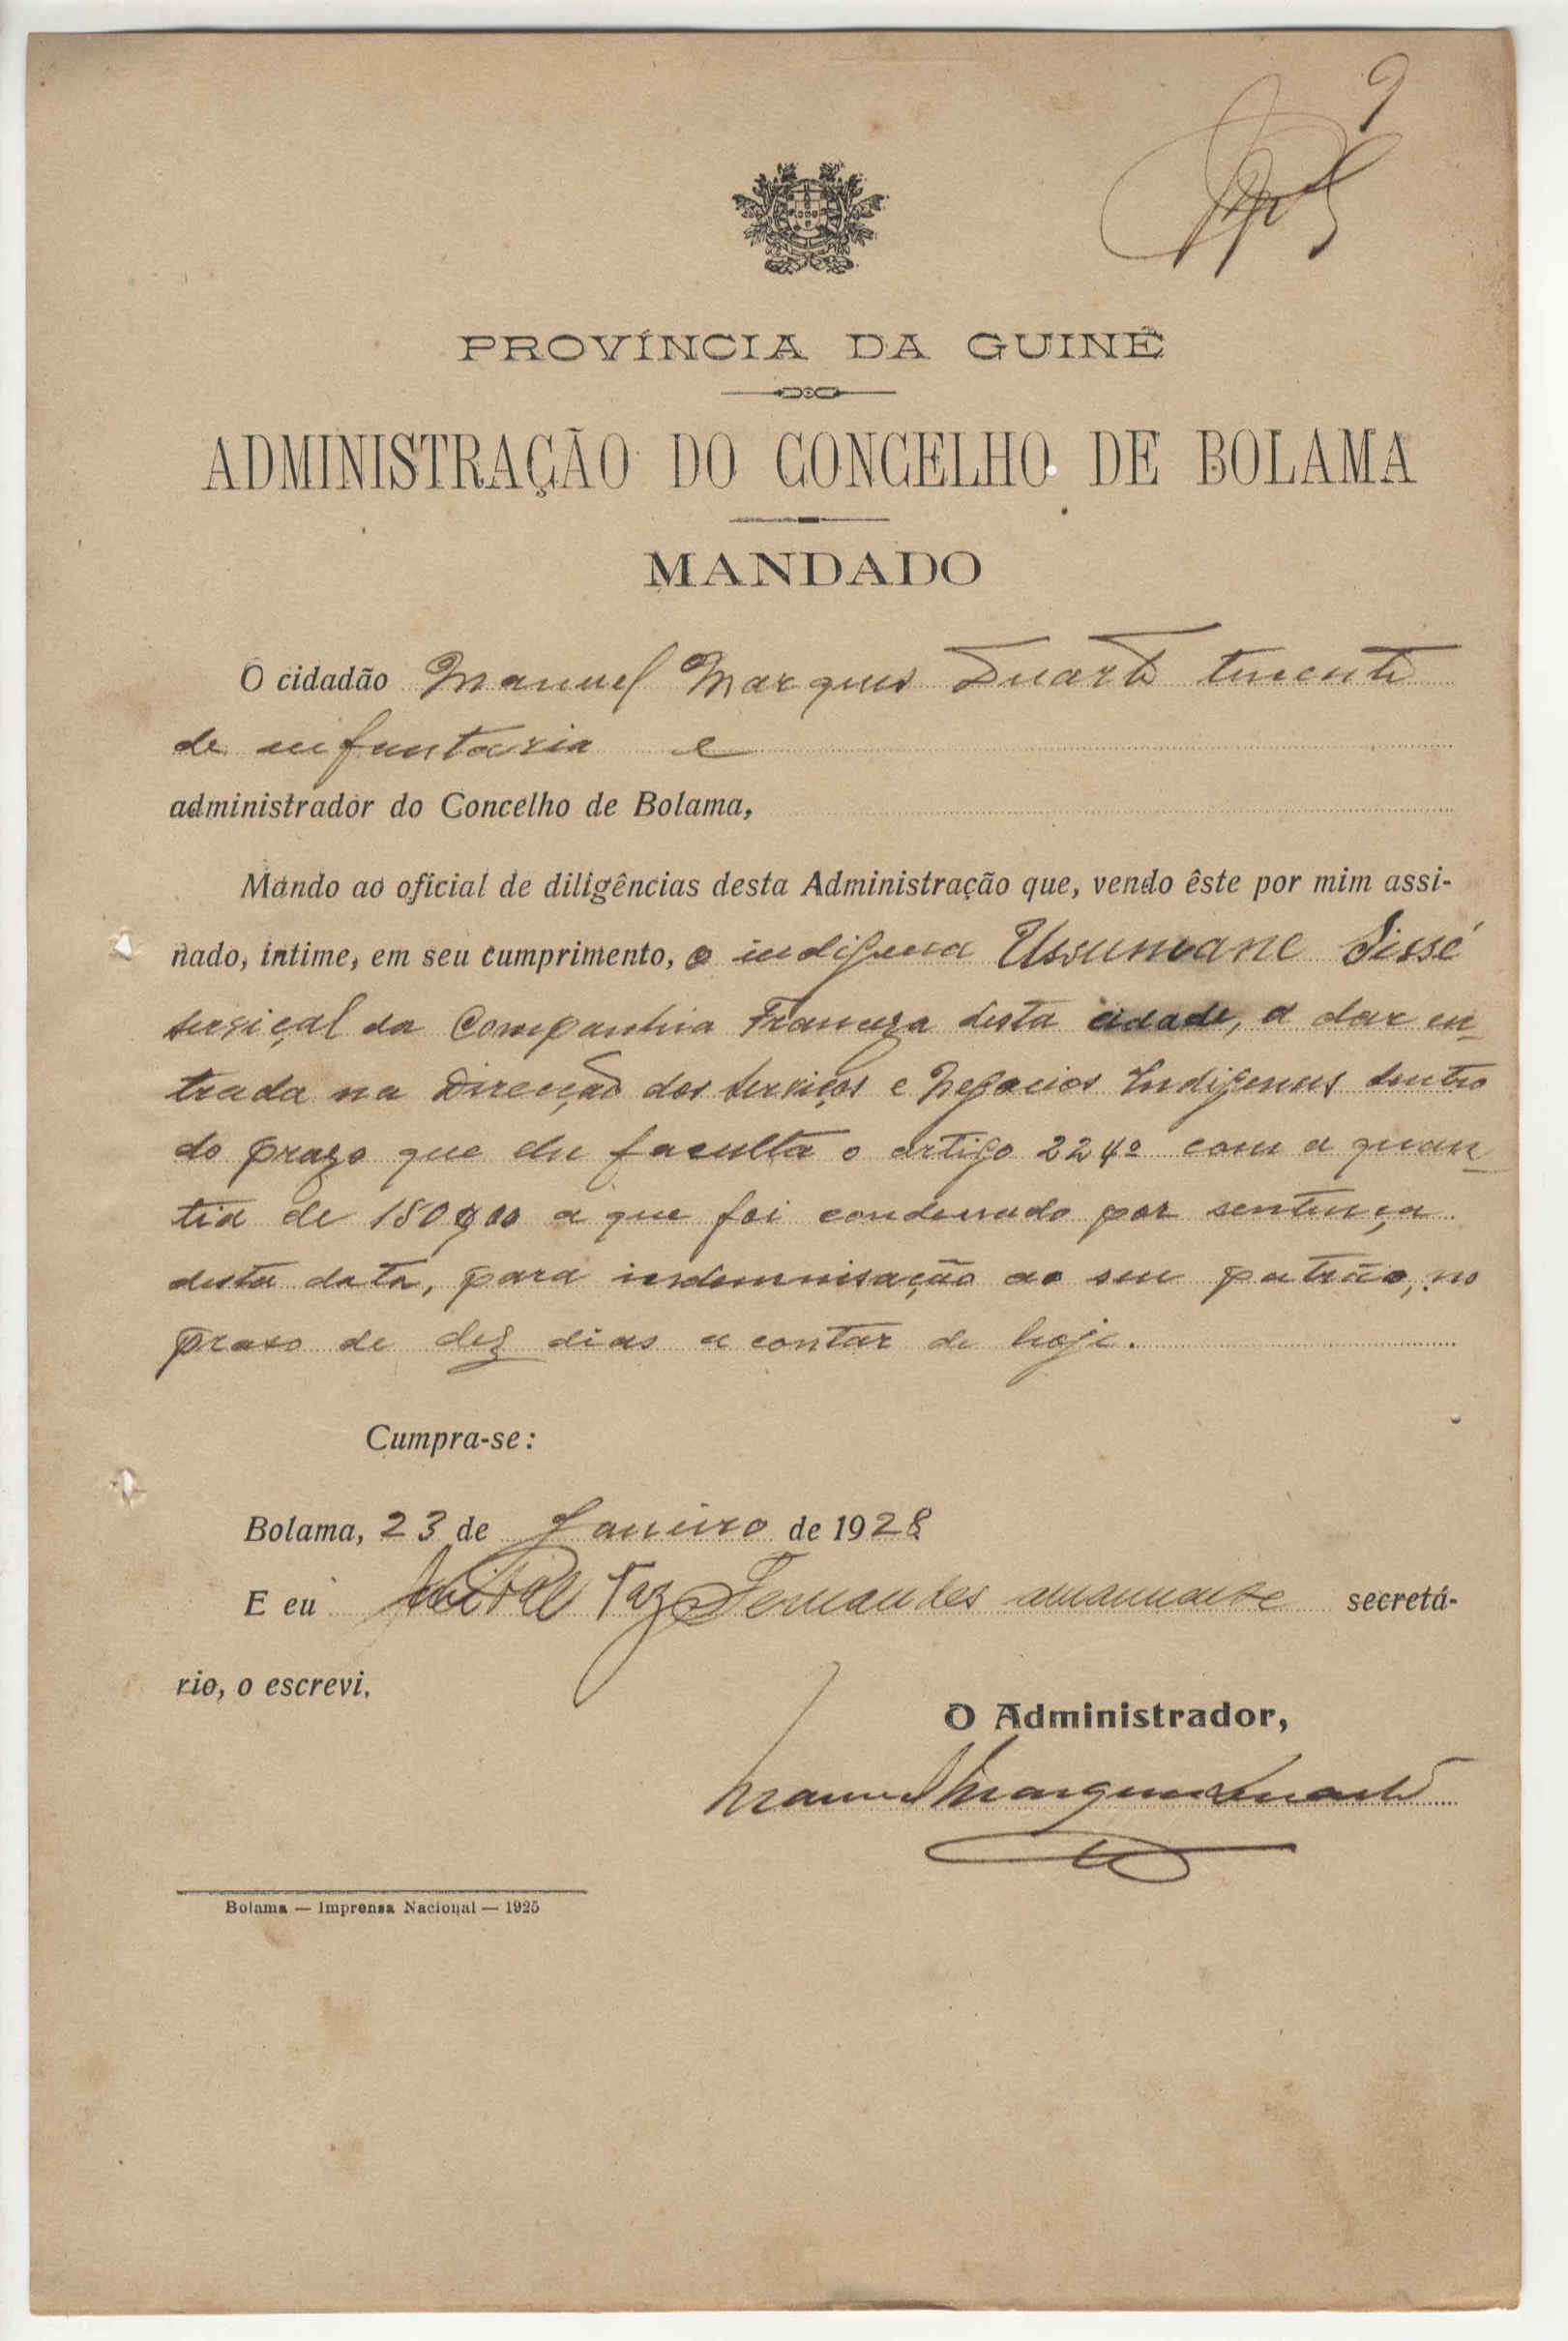 9
PROVÍNCIA DA GUINÉ
ADMINISTRAÇÃO DO CONCELHO DE BOLAMA
MANDADO
O cidadão Manuel Marques Duarte tenente
de infantaria e
administrador do Concelho de Bolama,
Mando ao oficial de diligências desta Administração que, vendo êste por mim assi-
nado, intime, em seu cumprimento, o indigena Ussumane Sissé
serviçal da Companhia Franceza desta cidade, a dar en
trada na Direcção dos Serviços e Negocios Indigenas dentro
do prazo que lhe faculta o artigo 224º com a quan
tia de 180$00 a que foi condenado por sentença
desta data, para indemnisação ao seu patrão, no
praso de dez dias a contar de hoje.
Cumpra-se:
Bolama, 23 de Janeiro de 1928
E eu Vaz Fernandes amanuense secretá-
rio, o escrevi.
O Administrador,
Manuel Marques Duarte
Bolama — Imprensa Nacional — 1925